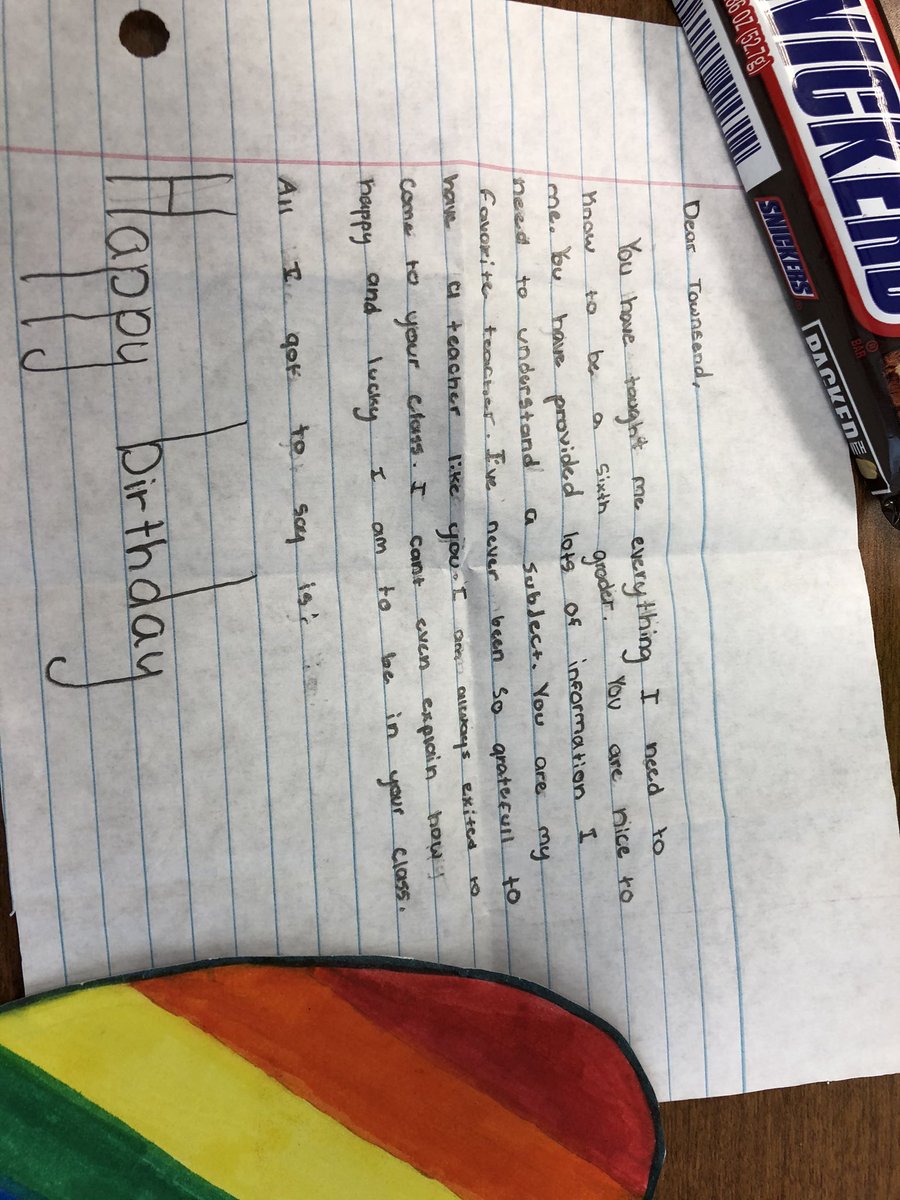 Dear Townsend,
You have taught me everything I need to
know to be a sixth grader. You are nice to
me. You have provided lots of information I
need to understand a subject. You are my
favorite teacher. I've never been so gratefull to
have a teacher like you. I am always exited to
come to your class. I can't even explain how
happy and lucky I am to be in your class.
All I got to say is:
Happy birthday
WICKERD
BAR
86 OZ (52.7g)
SNICKERS
PACKED